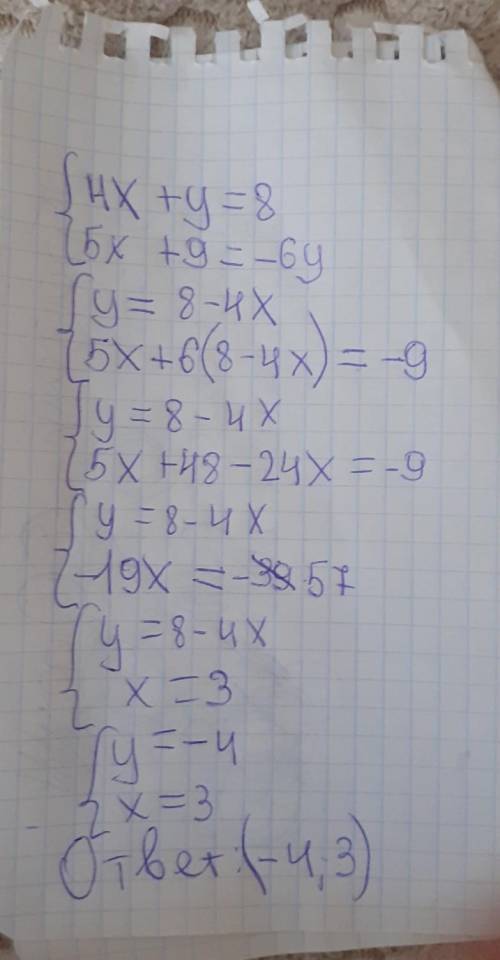 4x + y = 8
5x + 9 = -6y
y = 8 - 4x
5x + 6(8 - 4x) = -9
y = 8 - 4x
5x + 48 - 24x = -9
y = 8 - 4x
-19x = -57
y = 8 - 4x
x = 3
y = -4
x = 3
Ответ: (-4; 3)